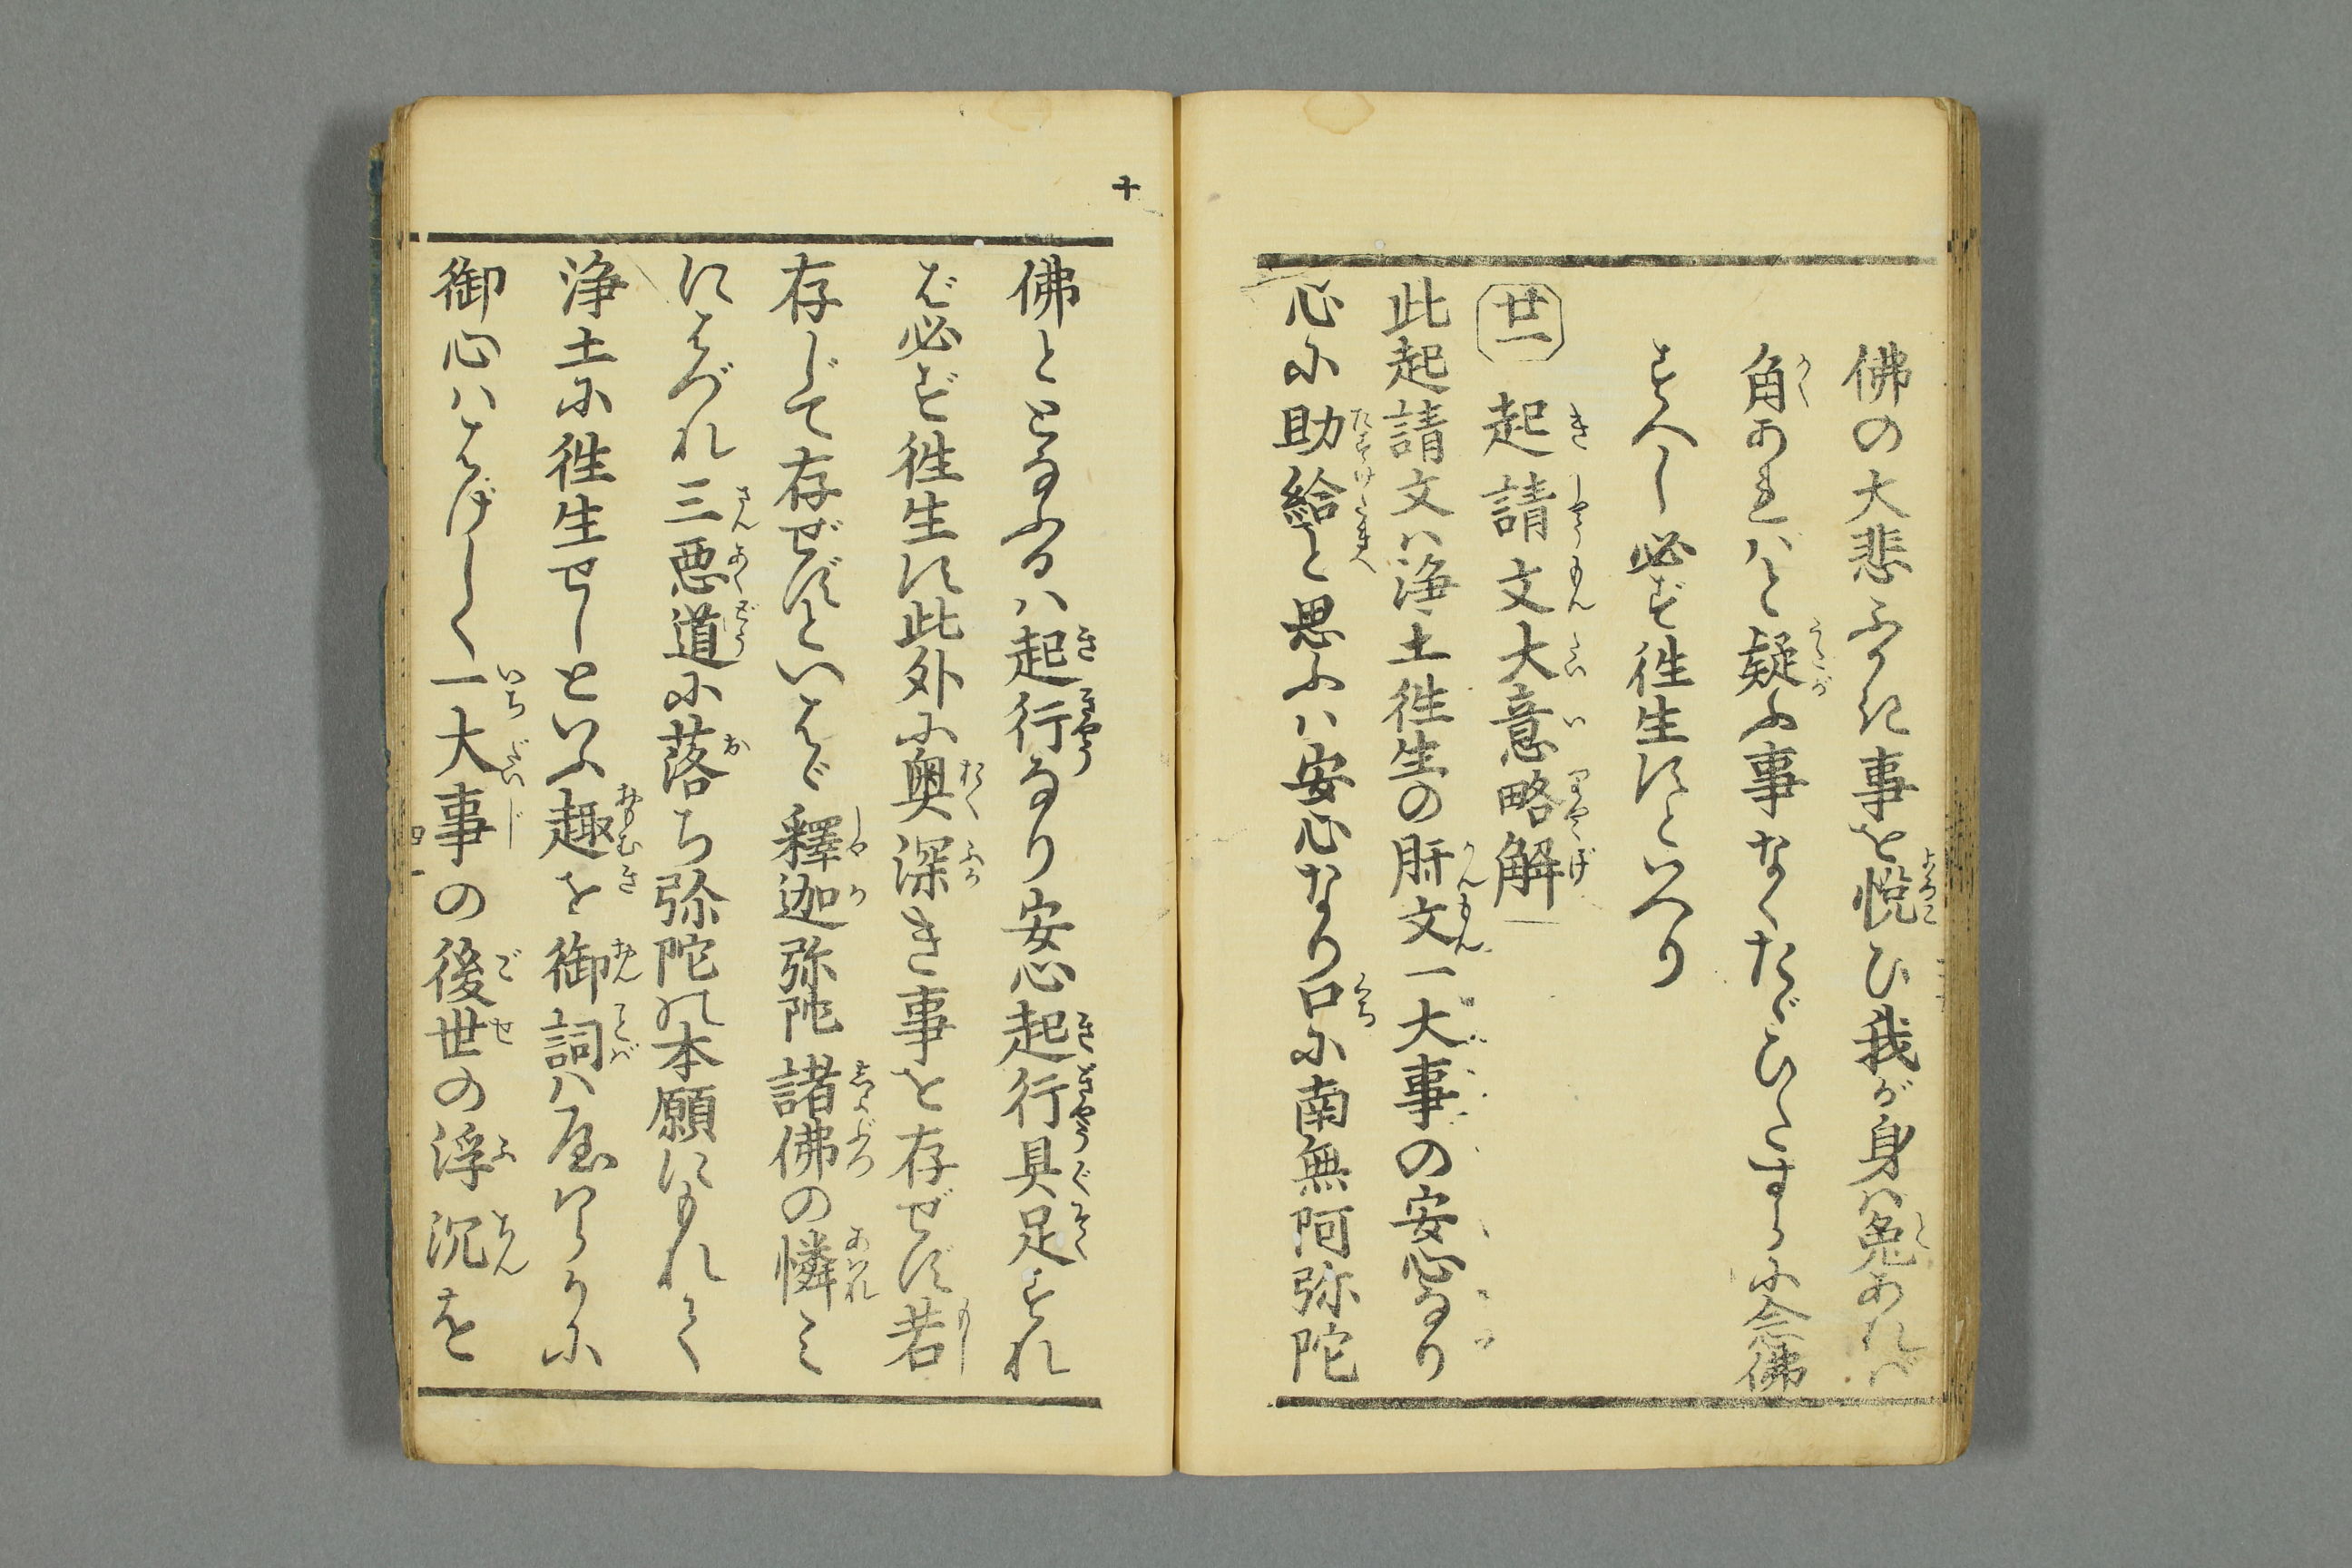 佛の大悲ふかき事を悦ひ我が身ハ兎あれバ
角あれハと疑ふ事なくたゞひたすらに念佛
すへし必ず往生すといへり
廿一 起請文大意略解
此起請文ハ浄土往生の肝文一大事の安心なり
心に助給と思ふハ安心なり口に南無阿弥陀
十
佛ととなふるハ起行なり安心起行具足すれ
ば必ず往生す此外に奥深き事を存ぜず若
存じて存ぜずといはゞ釋迦弥陀諸佛の憐ミ
にはづれ三悪道に落ち弥陀の本願にもれて
浄土に往生せしといふ趣を御詞ハ
御心ハはげしく一大事の後世の浮沉を